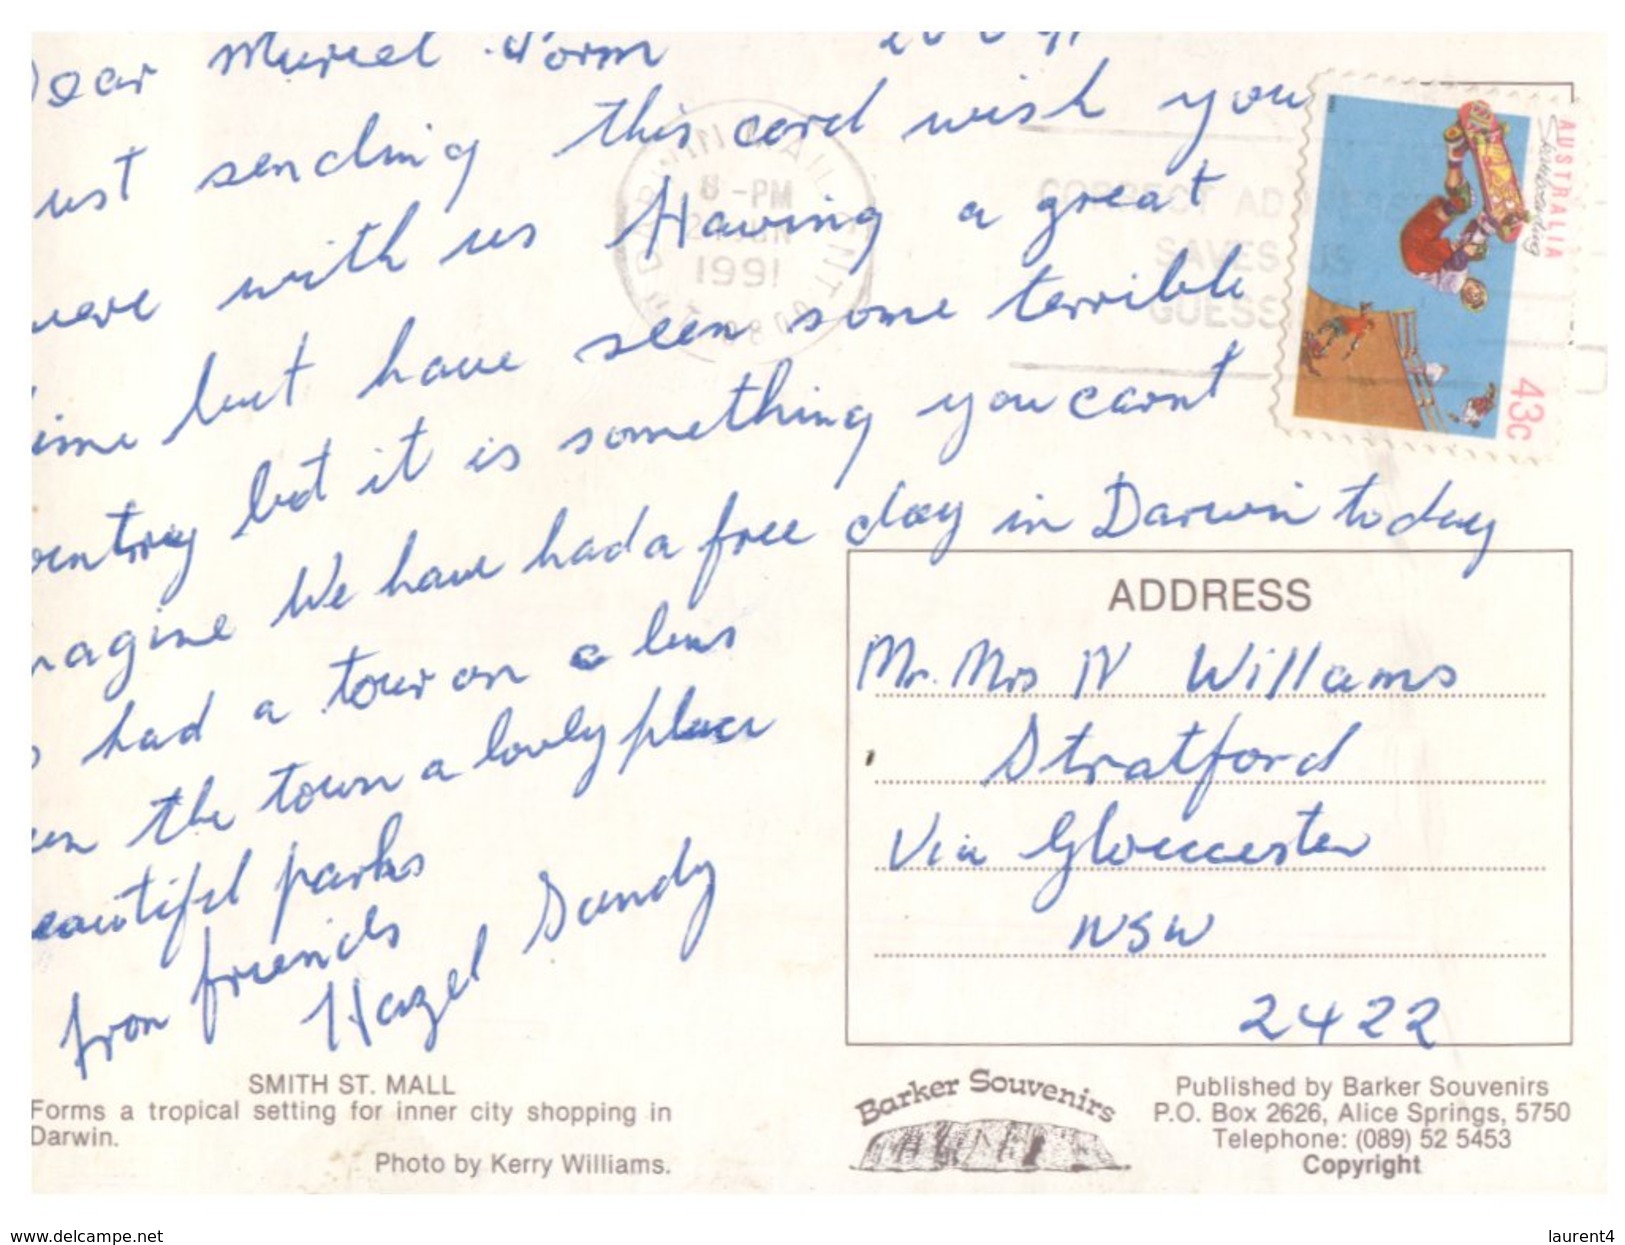 Dear Muriel Norm
ust sending this card wish you
were with us Having a great
ime but have seen some terrible
ountry but it is something you carnt
magine We have had a free day in Darwin today
had a tour on a bus
the town a lovely place
eautiful parks
from friends
Hazel Sandy
8-PM
1991
CORRECT ADDRESS
SAVES US
GUESS
AUSTRALIA
Skateboarding
43c
ADDRESS
Mr. Mrs N Willams
Stratford
Via Gloucester
NSW
2422
SMITH ST. MALL
Forms a tropical setting for inner city shopping in
Darwin.
Photo by Kerry Williams.
Barker Souvenirs
Published by Barker Souvenirs
P.O. Box 2626, Alice Springs, 5750
Telephone: (089) 52 5453
Copyright
www.delcampe.net
laurent4